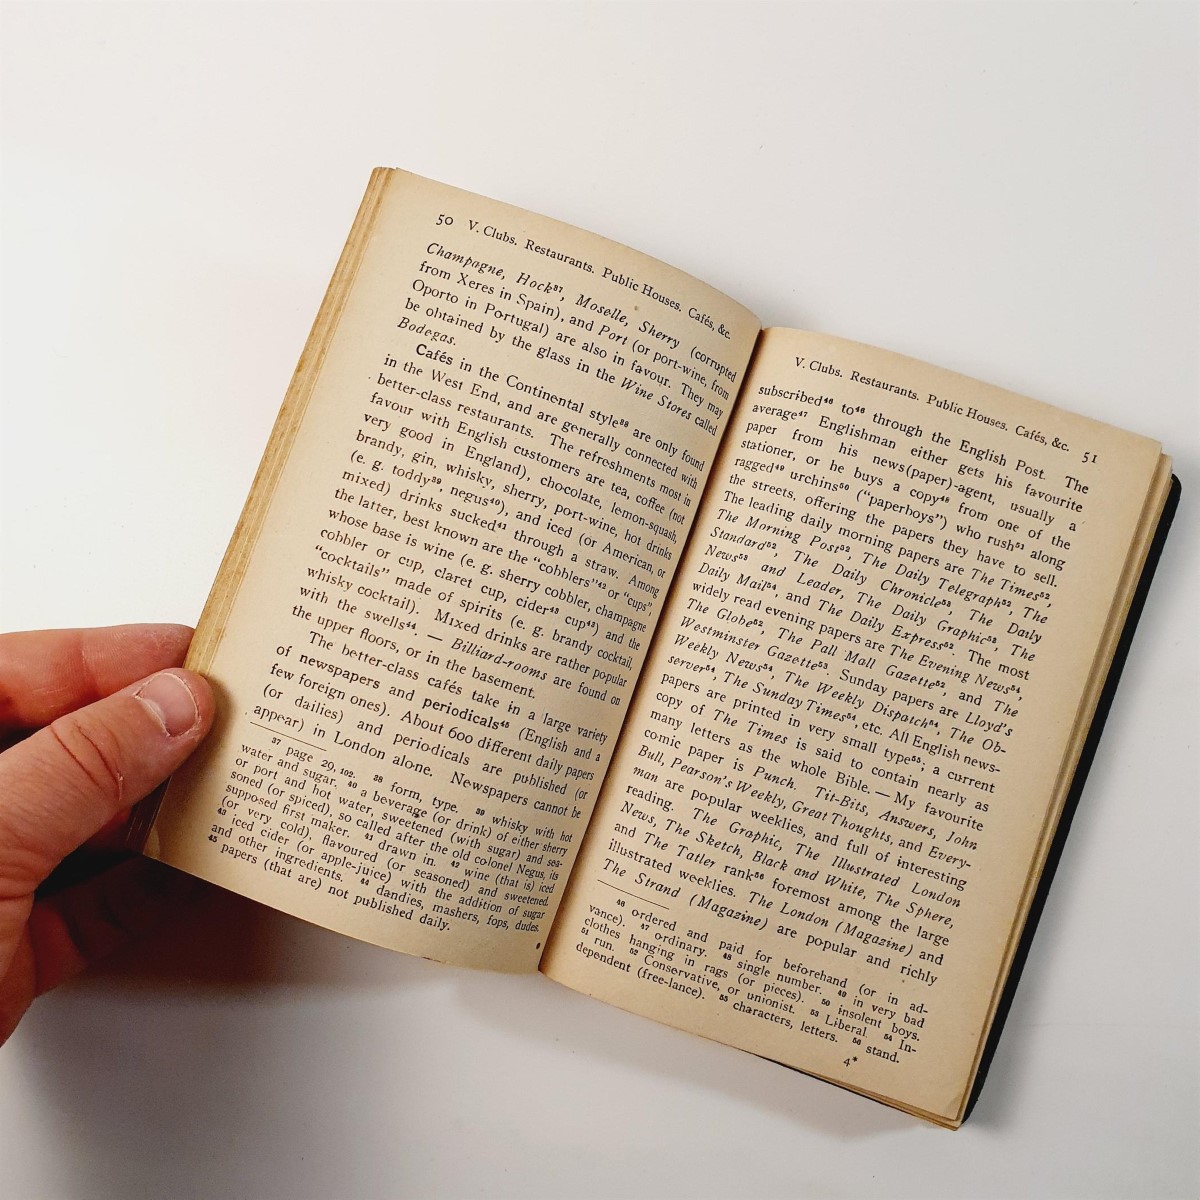 50 V. Clubs. Restaurants. Public Houses. Cafés, &c.
Champagne, Hock³⁷, Moselle, Sherry (corrupted
from Xeres in Spain), and Port (or port-wine, from
Oporto in Portugal) are also in favour. They may
be obtained by the glass in the Wine Stores called
Bodegas.
Cafés in the Continental style³⁸ are only found
in the West End, and are generally connected with
better-class restaurants. The refreshments most in
favour with English customers are tea, coffee (not
very good in England), chocolate, lemon-squash,
brandy, gin, whisky, sherry, port-wine, hot drinks
(e. g. toddy³⁹, negus⁴⁰), and iced (or American, or
mixed) drinks sucked⁴¹ through a straw. Among
the latter, best known are the "cobblers"⁴² or "cups",
whose base is wine (e. g. sherry cobbler, champagne
cobbler or cup, claret cup, cider⁴³ cup⁴²) and the
"cocktails" made of spirits (e. g. brandy cocktail,
whisky cocktail). Mixed drinks are rather popular
with the swells⁴⁴. — Billiard-rooms are found on
the upper floors, or in the basement.
The better-class cafés take in a large variety
of newspapers and periodicals⁴⁵ (English and a
few foreign ones). About 600 different daily papers
(or dailies) and periodicals are published (or
appear) in London alone. Newspapers cannot be
³⁷ page 29, 102. ³⁸ form, type. ³⁹ whisky with hot
water and sugar. ⁴⁰ a beverage (or drink) of either sherry
or port and hot water, sweetened (with sugar) and sea-
soned (or spiced), so called after the old colonel Negus, its
supposed first maker. ⁴¹ drawn in. ⁴² wine (that is) iced
(or very cold), flavoured (or seasoned) and sweetened.
⁴³ iced cider (or apple-juice) with the addition of sugar
and other ingredients. ⁴⁴ dandies, mashers, fops, dudes.
⁴⁵ papers (that are) not published daily.
V. Clubs. Restaurants. Public Houses. Cafés, &c. 51
subscribed⁴⁶ to⁴⁶ through the English Post. The
average⁴⁷ Englishman either gets his favourite
paper from his news(paper)-agent, usually a
stationer, or he buys a copy⁴⁸ from one of the
ragged⁴⁹ urchins⁵⁰ ("paperboys") who rush⁵¹ along
the streets, offering the papers they have to sell.
The leading daily morning papers are The Times⁵²,
The Morning Post⁵², The Daily Telegraph⁵², The
Standard⁵², The Daily Chronicle⁵³, The Daily
News⁵³ and Leader, The Daily Graphic⁵², The
Daily Mail⁵⁴, and The Daily Express⁵². The most
widely read evening papers are The Evening News⁵⁴,
The Globe⁵², The Pall Mall Gazette⁵², and The
Westminster Gazette⁵³. Sunday papers are Lloyd's
Weekly News⁵⁴, The Weekly Dispatch⁵⁴, The Ob-
server⁵⁴, The Sunday Times⁵⁴, etc. All English news-
papers are printed in very small type⁵⁵; a current
copy of The Times is said to contain nearly as
many letters as the whole Bible. — My favourite
comic paper is Punch. Tit-Bits, Answers, John
Bull, Pearson's Weekly, Great Thoughts, and Every-
man are popular weeklies, and full of interesting
reading. The Graphic, The Illustrated London
News, The Sketch, Black and White, The Sphere,
and The Tatler rank⁵⁶ foremost among the large
illustrated weeklies. The London (Magazine) and
The Strand (Magazine) are popular and richly
⁴⁶ ordered and paid for beforehand (or in ad-
vance). ⁴⁷ ordinary. ⁴⁸ single number. ⁴⁹ in very bad
clothes hanging in rags (or pieces). ⁵⁰ insolent boys.
⁵¹ run. ⁵² Conservative, or unionist. ⁵³ Liberal. ⁵⁴ In-
dependent (free-lance). ⁵⁵ characters, letters. ⁵⁶ stand.
4*